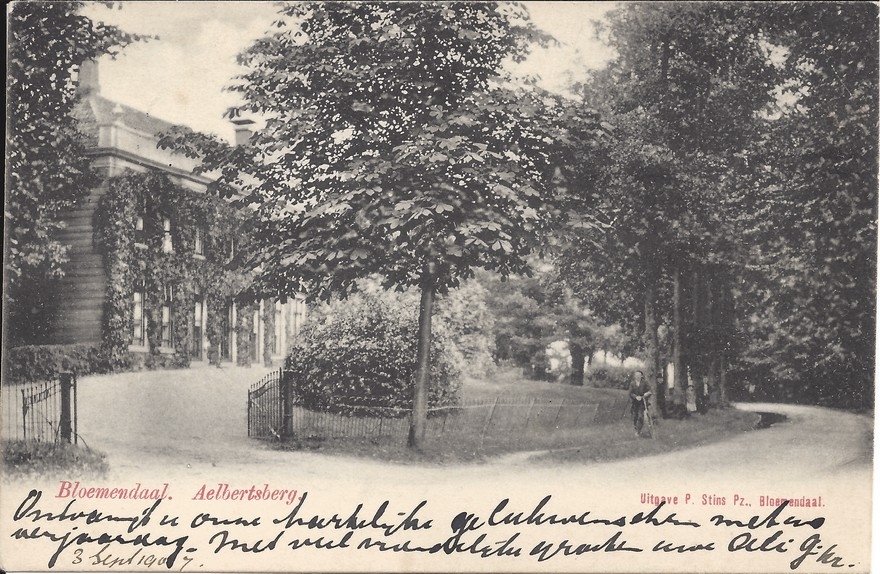 Bloemendaal. Aelbertsberg.
Uitgave P. Stins Pz., Bloemendaal.
Ontvangt u onze hartelijke gelukwenschen met uw
verjaardag. Met veel vriendelijke groeten uwe Ali
3 Sept 1907.